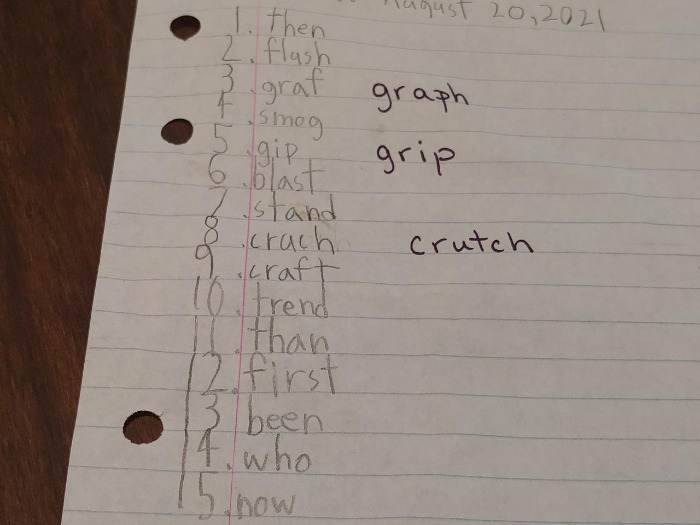 August 20, 2021
1. then
2. flash
3. graf graph
4. smog
5. gip grip
6. blast
7. stand
8. cruch crutch
9. craft
10. trend
11. than
12. first
13. been
14. who
15. now